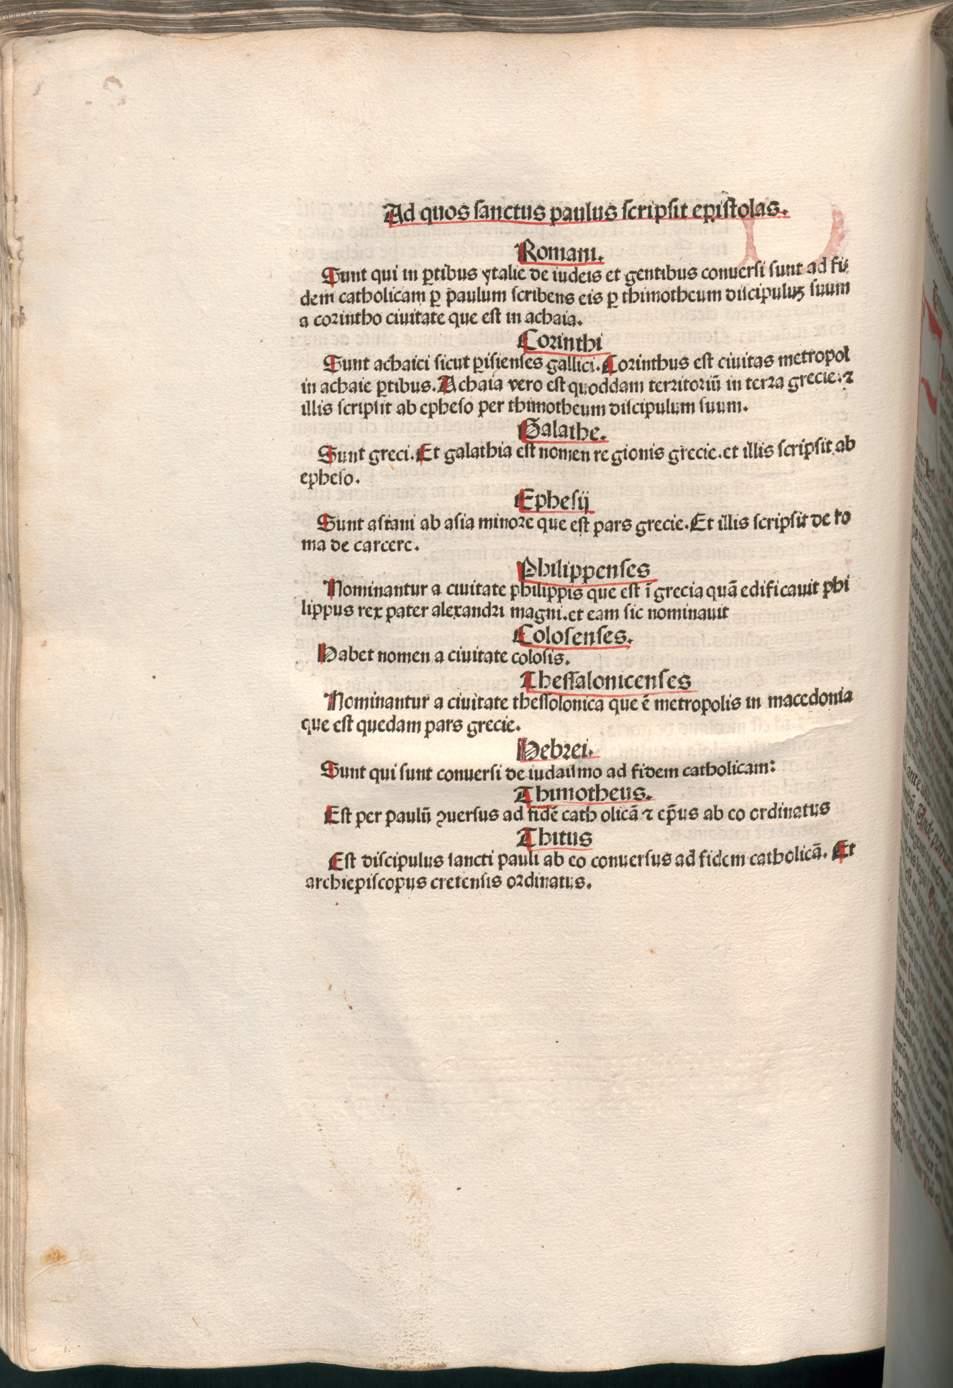 Ad quos sanctus paulus scripsit epistolas.
Romani.
Sunt qui in ꝑtibus ytalie de iudeis et gentibus conuersi sunt ad fi
dem catholicam ꝑ paulum scribens eis ꝑ thimotheum discipuluꝫ suum
a corintho ciuitate que est in achaia.
Corinthi
Sunt achaici sicut ꝑisienses gallici. Corinthus est ciuitas metropol
in achaie ꝑtibus. Achaia vero est quoddam territoriū in terra grecie. ⁊
illis scripsit ab epheso per thimotheum discipulum suum.
Galathe.
Sunt greci. Et galathia est nomen regionis grecie. et illis scripsit ab
epheso.
Ephesij
Sunt asiani ab asia minore que est pars grecie. Et illis scripsit de ro
ma de carcere.
Philippenses
Nominantur a ciuitate philippis que est ī grecia quā edificauit phi
lippus rex pater alexandri magni. et eam sic nominauit
Colosenses.
Habet nomen a ciuitate colosis.
Thessalonicenses
Nominantur a ciuitate thessolonica que ē metropolis in macedonia
que est quedam pars grecie.
Hebrei.
Sunt qui sunt conuersi de iudaismo ad fidem catholicam:
Thimotheus.
Est per paulū ꝯuersus ad fidē catholicā ⁊ ep̄us ab eo ordinatus
Thitus
Est discipulus sancti pauli ab eo conuersus ad fidem catholicā. Et
archiepiscopus cretensis ordinatus.